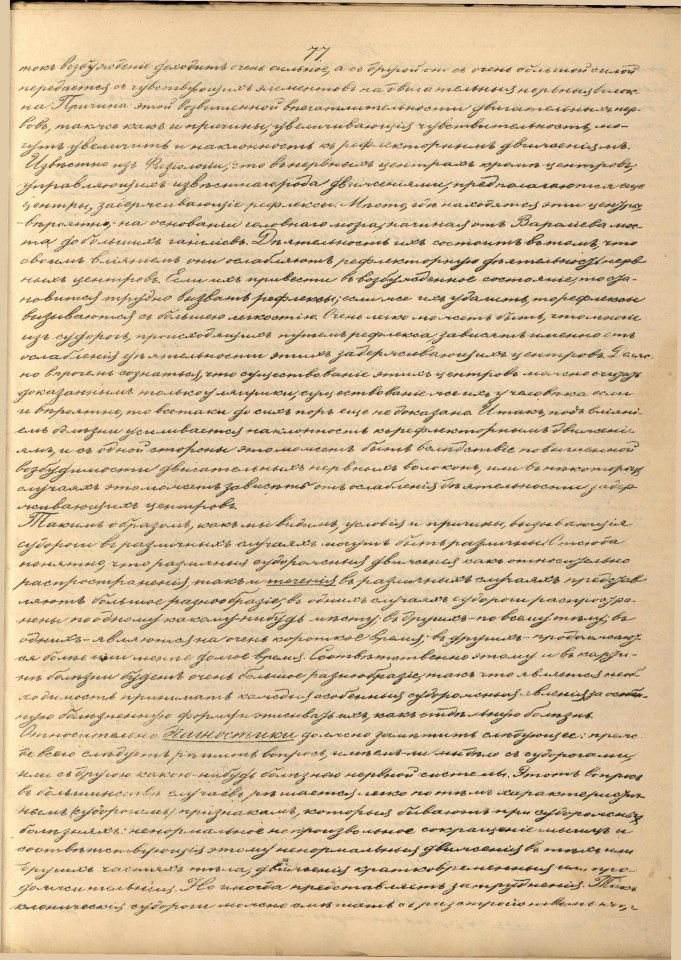 77.
токъ возбужденіе доходитъ очень сильное, а съ другой оно съ очень большой силой
передается съ чувствующихъ элементовъ на двигательныя нервныя волок-
на. Причина этой возвышенной впечатлительности двигательныхъ нер-
вовъ, также какъ и причины, увеличивающія чувствительность, мо-
гутъ увеличить и наклонность къ рефлекторнымъ движеніямъ.
Извѣстно изъ Физіологіи, что въ нервныхъ центрахъ кромѣ центровъ,
управляющихъ извѣстнаго рода движеніями, предполагаются еще
центры, задерживающіе рефлексы. Мѣсто, гдѣ находятся эти центры
вѣроятно, на основаніи головнаго мозга, начиная отъ Вароліева мос-
та до большихъ гангліевъ. Дѣятельность ихъ состоитъ въ томъ, что
своимъ вліяніемъ они ослабляютъ рефлекторную дѣятельность нерв-
ныхъ центровъ. Если ихъ привести въ возбужденное состояніе, то ста-
новится трудно вызвать рефлексы; если же ихъ удалить, то рефлексы
вызываются съ большею легкостію. Очень легко можетъ быть, что многія
изъ судорогъ, происходящихъ путемъ рефлекса, зависятъ именно отъ
ослабленія дѣятельности этихъ задерживающихъ центровъ. Долж-
но впрочемъ сознаться, что существованіе этихъ центровъ можно считать
доказаннымъ только у лягушки; существованіе же ихъ у человѣка если
и вѣроятно, то всетаки до сихъ поръ еще не доказано. Итакъ, подъ вліяні-
емъ болѣзни усиливается наклонность къ рефлекторнымъ движені-
ямъ, и съ одной стороны это можетъ быть вслѣдствіе повышенной
возбудимости двигательныхъ нервныхъ волоконъ, или въ нѣкоторыхъ
случаяхъ это можетъ зависѣть отъ ослабленія дѣятельности задер-
живающихъ центровъ.
Такимъ образомъ, какъ мы видимъ, условія и причины, вызывающія
судороги въ различныхъ случаяхъ могутъ быть различны. Отсюда
понятно, что различныя судорожныя движенія какъ относительно
распространенія такъ и теченія въ различныхъ случаяхъ представ-
ляютъ большое разнообразіе; въ однихъ случаяхъ судороги распростра-
нены по одному какому нибудь мѣсту, въ другихъ - по всему тѣлу; въ
однихъ - являются на очень короткое время, въ другихъ - продолжают-
ся болѣе или менѣе долгое время. Соотвѣтственно этому и въ карти-
нѣ болѣзни будетъ очень большое разнообразіе, такъ что является необ-
ходимость принимать каждыя особенныя судорожныя явленія за особен-
ную болѣзненную форму и описывать ихъ, какъ отдѣльную болѣзнь.
Относительно Діагностики должно замѣтить слѣдующее: преж-
де всего слѣдуетъ рѣшить вопросъ, имѣемъ ли мы дѣло съ судорогами,
или съ другою какою-нибудь болѣзнью нервной системы. Этотъ вопросъ
въ большинствѣ случаевъ рѣшается легко по тѣмъ характеристич-
нымъ (судорогамъ) признакамъ, которыя бываютъ при судорожныхъ
болѣзняхъ: ненормальное непроизвольное сокращеніе мышцъ и
соотвѣтствующія этому ненормальныя движенія въ тѣхъ или
другихъ частяхъ тѣла, движенія кратковременныя или про-
должительныя. Но иногда представляетъ затрудненія. Такъ
клоническія судороги можно смѣшать съ